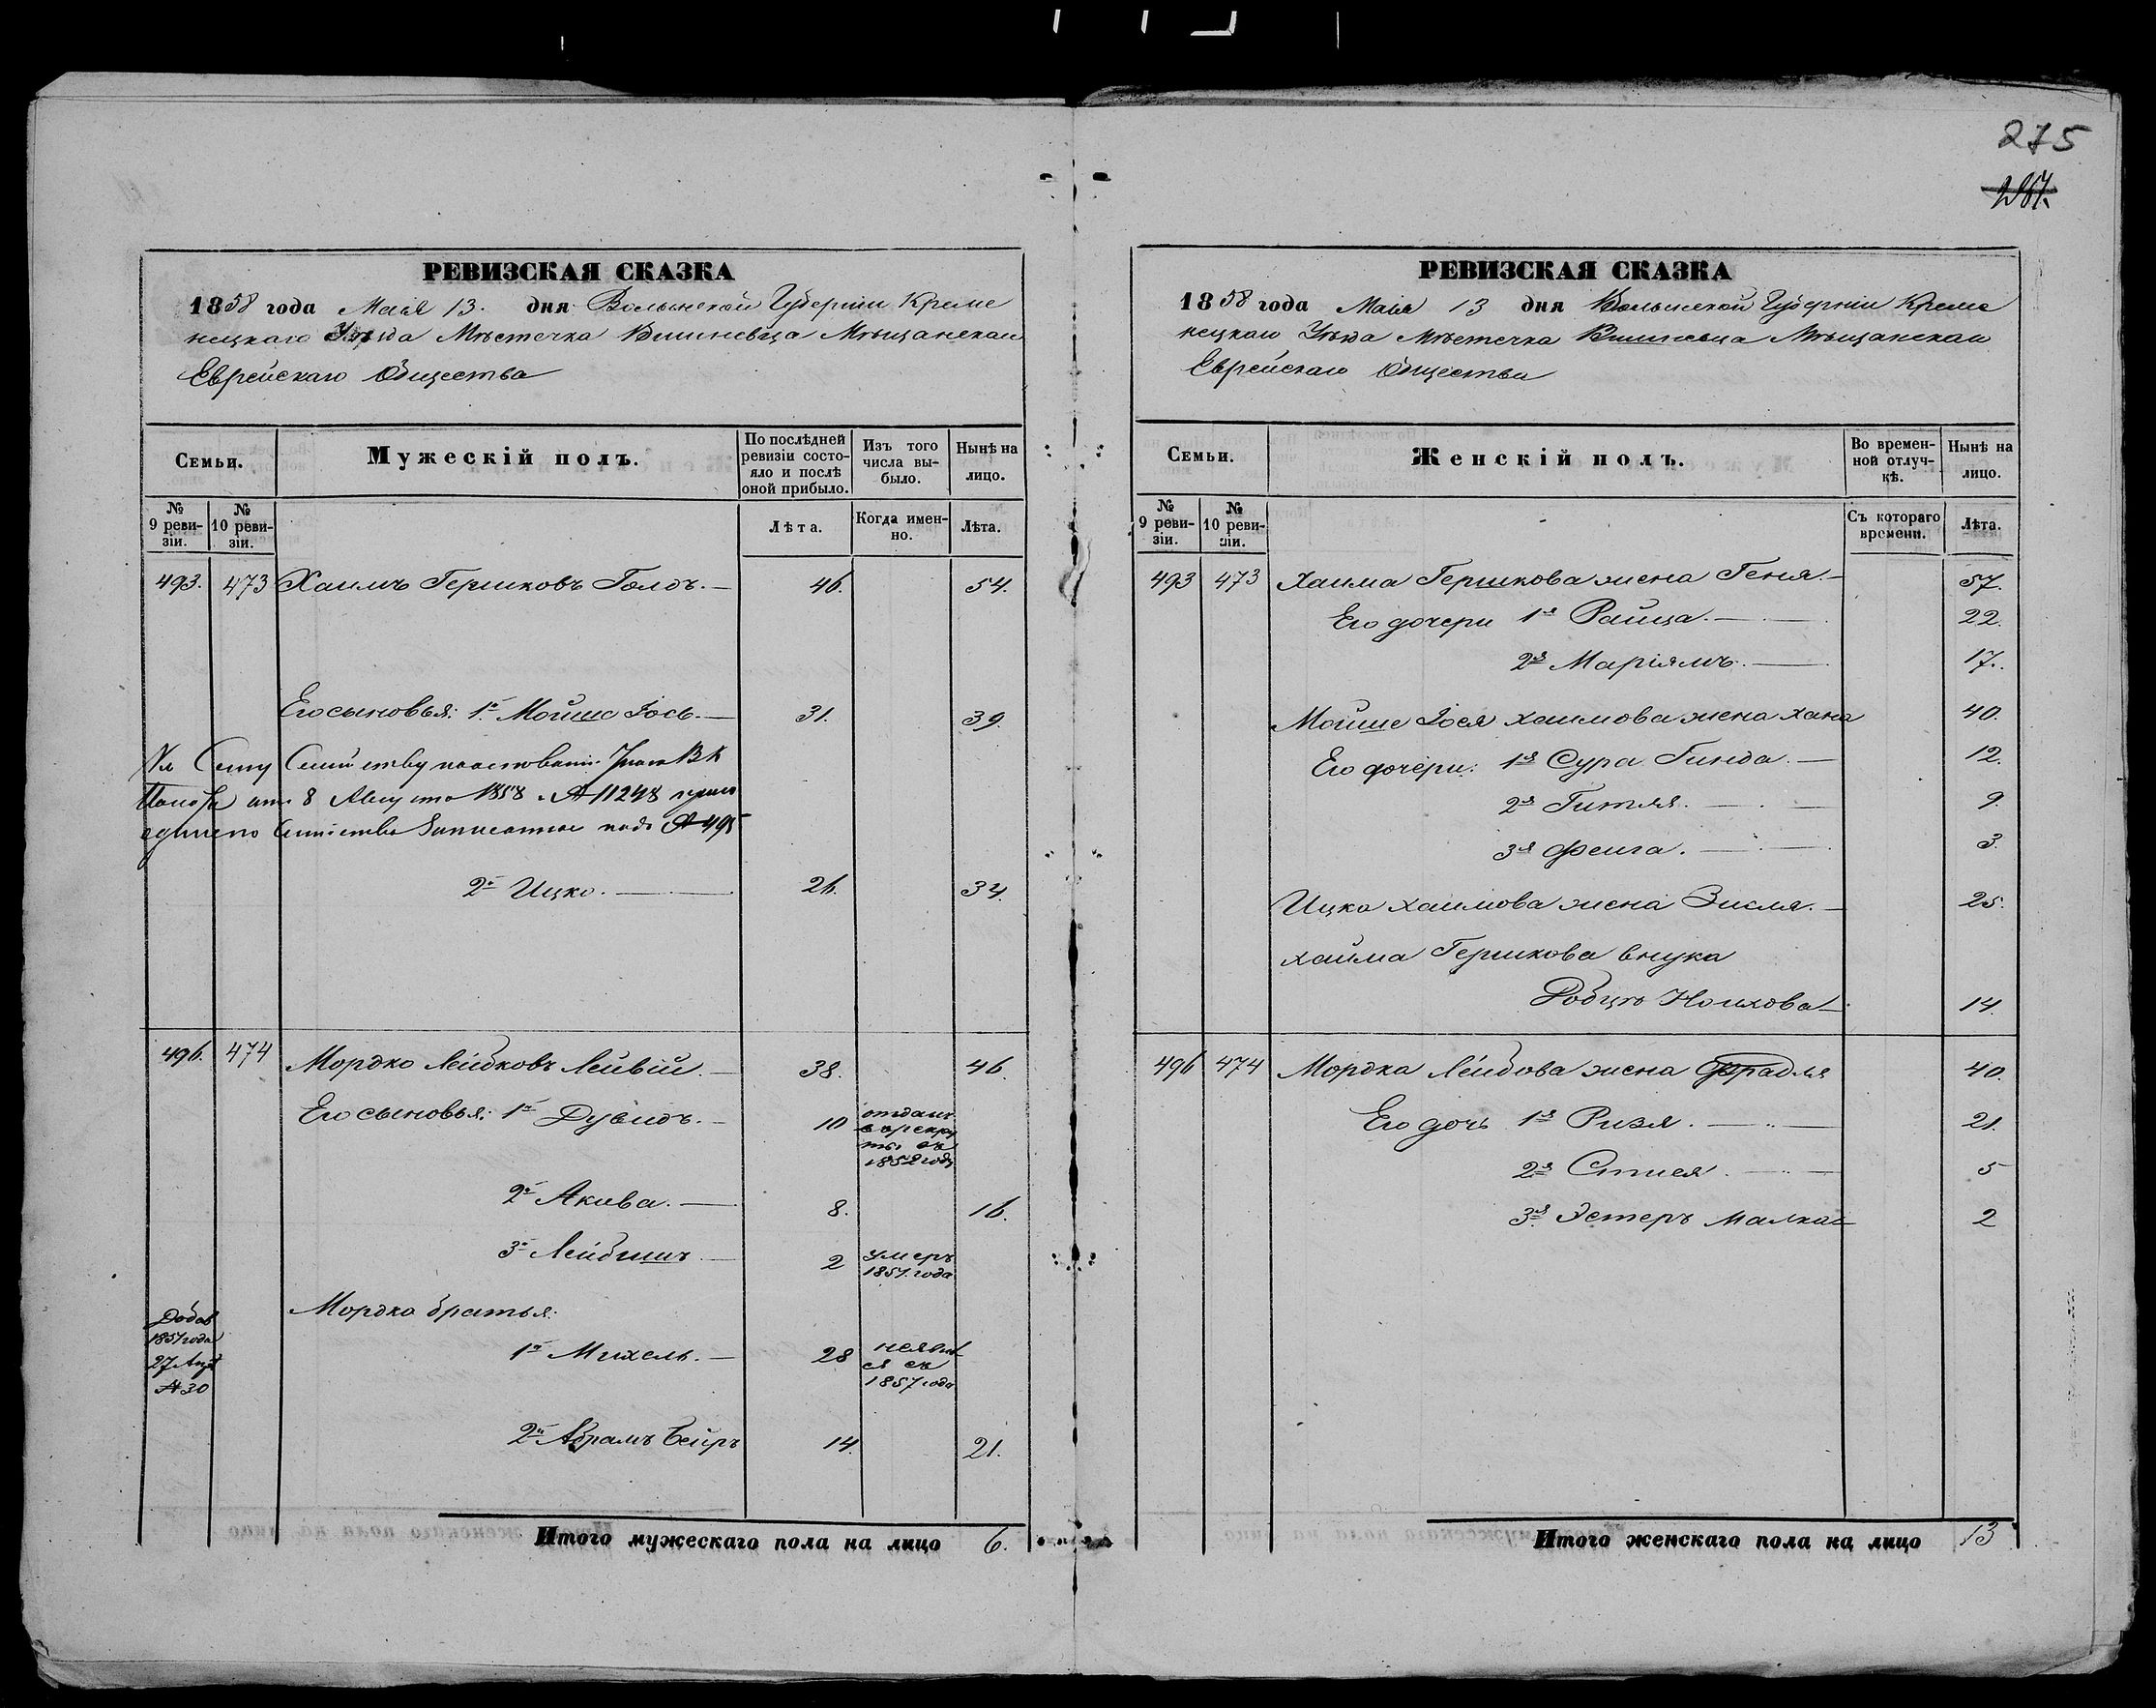 275
РЕВИЗСКАЯ СКАЗКА
1858 года Маія 13. дня Волынской Губерніи Креме
нецкаго Уѣзда Мѣстечка Вишневца Мѣщанскаго
Еврейскаго Общества
Семьи.
Мужескій полъ.
По послѣдней ревизіи состояло и послѣ оной прибыло.
Изъ того числа выбыло.
Нынѣ на лицо.
№ 9 ревизіи.
№ 10 ревизіи.
Лѣта.
Когда именно.
Лѣта.
493. 473 Хаимъ Гершковъ Голдъ. 46. 54.
Его сыновья: 1й Мойше Іось. 31. 39.
Къ Сему Семейству
от 8 Августа 1858 № 11248
Семейство Записанное подъ № 495
2й Ицко. 26. 34.
496. 474 Мордко Лейбковъ Лейвій. 38. 46.
Его сыновья: 1й Дувидъ. 10 отданъ в рекруты въ 1852 году
2й Акива. 8. 16.
3й Лейбишъ 2 умеръ 1851. года
Мордка братья:
Добав 1857 года 27 № 30
1й Михель. 28 съ 1857 года
2й Абрамъ Бейръ 14. 21.
Итого мужескаго пола на лицо 6.
РЕВИЗСКАЯ СКАЗКА
1858 года Маія 13 дня Волынской Губерніи Креме
нецкаго Уѣзда Мѣстечка Вишневца Мѣщанскаго
Еврейскаго Общества
Семьи.
Женскій полъ.
Во временной отлучкѣ.
Нынѣ на лицо.
№ 9 ревизіи.
№ 10 ревизіи.
Съ котораго времени.
Лѣта.
493 473 Хаима Гершкова жена Геня. 57.
Его дочери 1я Райца. 22.
2я Маріямъ. 17.
Мойше Іося Хаимова жена Хана 40.
Его дочери: 1я Сура Гинда. 12.
2я Гитля. 9.
3я Феига. 3.
Ицка Хаимова жена Зисля. 25.
Хаима Гершкова внука
Добцѣ 14.
496 474 Мордка Лейбова жена Фрадля 40.
Его дочь 1я Ризя. 21.
2я 5
3я Эстеръ Малка 2
Итого женскаго пола на лицо 13